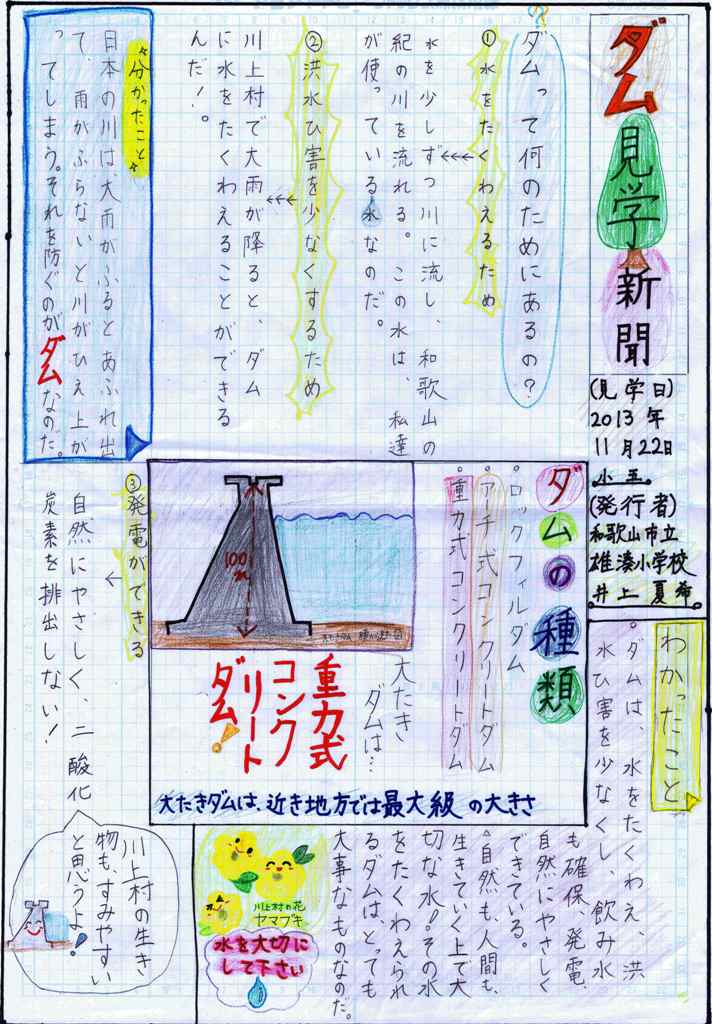 ダム見学新聞
(見学日)
2013年
11月22日
小五。
(発行者)
和歌山市立
雄湊小学校
井上夏希。
ダムって何のためにあるの?
①水をたくわえるため
水を少しずつ川に流し、和歌山の
紀の川を流れる。この水は、私達
が使っている水なのだ。
②洪水ひ害を少なくするため
川上村で大雨が降ると、ダム
に水をたくわえることができる
んだ!。
分かったこと
日本の川は大雨がふるとあふれ出
て、雨がふらないと川がひえ上が
ってしまう。それを防ぐのがダムなのだ。
ダムの種類
・ロックフィルダム
・アーチ式コンクリートダム
・重力式コンクリートダム
100m
大たき
ダムは…
重力式
コンク
リート
ダム!
大たきダムは、近き地方では最大級の大きさ
③発電ができる
自然にやさしく、二酸化
炭素を排出しない!
川上村の生き
物も、すみやすい
と思うよ!
わかったこと
。ダムは、水をたくわえ、洪
水ひ害を少なくし、飲み水
も確保、発電、
自然にやさしく
できている。
。自然も、人間も、
生きていく上で大
切な水!その水
をたくわえられ
るダムは、とっても
大事なものなのだ。
川上村の花
ヤマブキ
水を大切に
して下さい